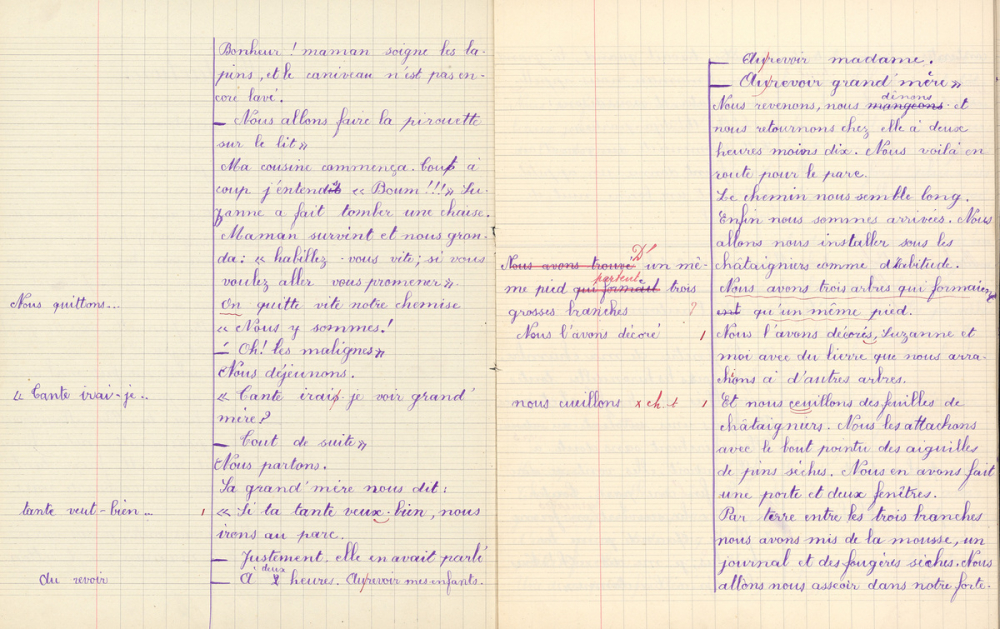 Bonheur ! maman soigne les la-
pins, et le caniveau n'est pas en-
core lavé.
— Nous allons faire la pirouette
sur le lit »
Ma cousine commença. Tout à
coup j'entends « Boum !!! » Su-
zanne a fait tomber une chaise.
Maman survint et nous gron-
da : « habillez-vous vite ; si vous
voulez aller vous promener ».
Nous quittons...
On quitte vite notre chemise
« Nous y sommes !
— Oh ! les malignes »
Nous déjeunons.
« Tante irai-je..
« Tante irais je voir grand'
mère ?
— Tout de suite »
Nous partons.
Sa grand'mère nous dit :
tante veut-bien...
« Si ta tante veux-bien, nous
irons au parc.
— Justement, elle en avait parlé
Au revoir
— À deux heures. Au revoir mes enfants.
— Au revoir madame.
— Au revoir grand'mère »
Nous revenons, nous mangeons dînons et
nous retournons chez elle à deux
heures moins dix. Nous voilà en
route pour le parc.
Le chemin nous semble long.
Enfin nous sommes arrivées. Nous
allons nous installer sous les
châtaigniers comme d'habitude.
Nous avons trouvé D' un mê-
me pied qui formait partent trois
grosses branches ?
Nous avons trois arbres qui formaiez
ent qu'un même pied.
Nous l'avons décoré
Nous l'avons décorés, Suzanne et
moi avec du lierre que nous arra-
chons à d'autres arbres.
nous cueillons x ch. t
Et nous ceuillons des feuilles de
châtaigniers. Nous les attachons
avec le bout pointu des aiguilles
de pins sèches. Nous en avons fait
une porte et deux fenêtres.
Par terre entre les trois branches
nous avons mis de la mousse, un
journal et des fougères sèches. Nous
allons nous asseoir dans notre forte-